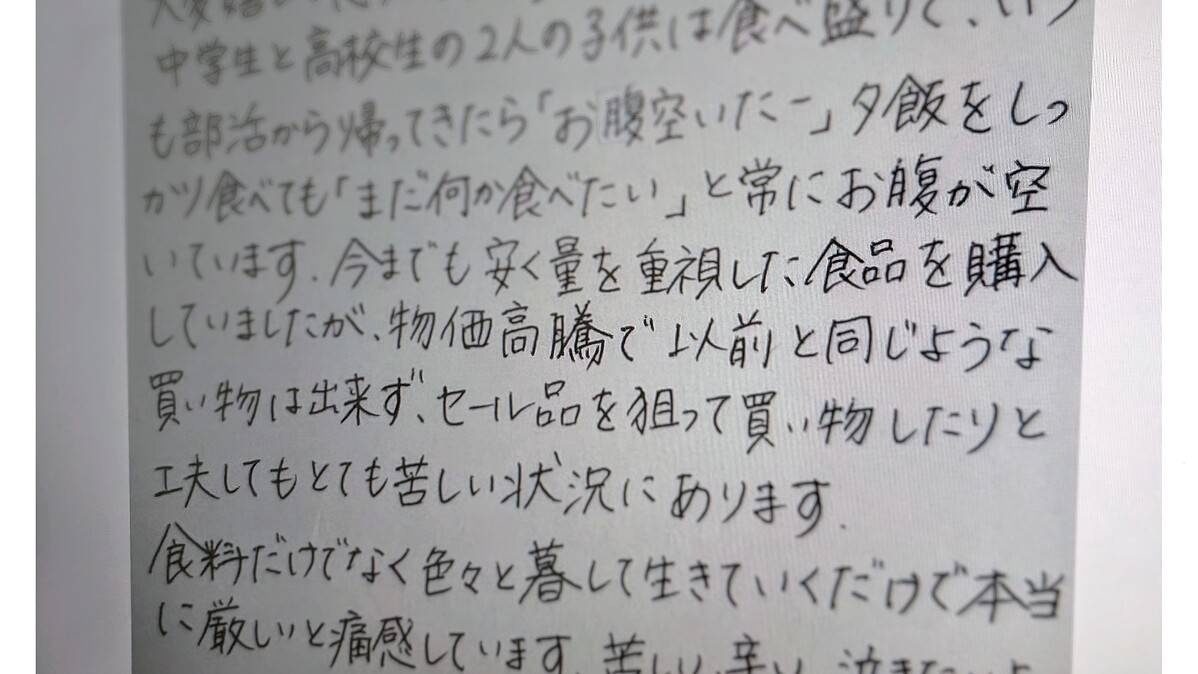 中学生と高校生の2人の子供は食べ盛りで、いつ
も部活から帰ってきたら「お腹空いたー」夕飯をしっ
かり食べても「まだ何か食べたい」と常にお腹が空
いています。今までも安く量を重視した食品を購入
していましたが、物価高騰で以前と同じような
買い物は出来ず、セール品を狙って買い物したりと
工夫してもとても苦しい状況にあります.
食料だけでなく色々と暮して生きていくだけで本当
に厳しいと痛感しています。苦しい、辛い、泣きたい